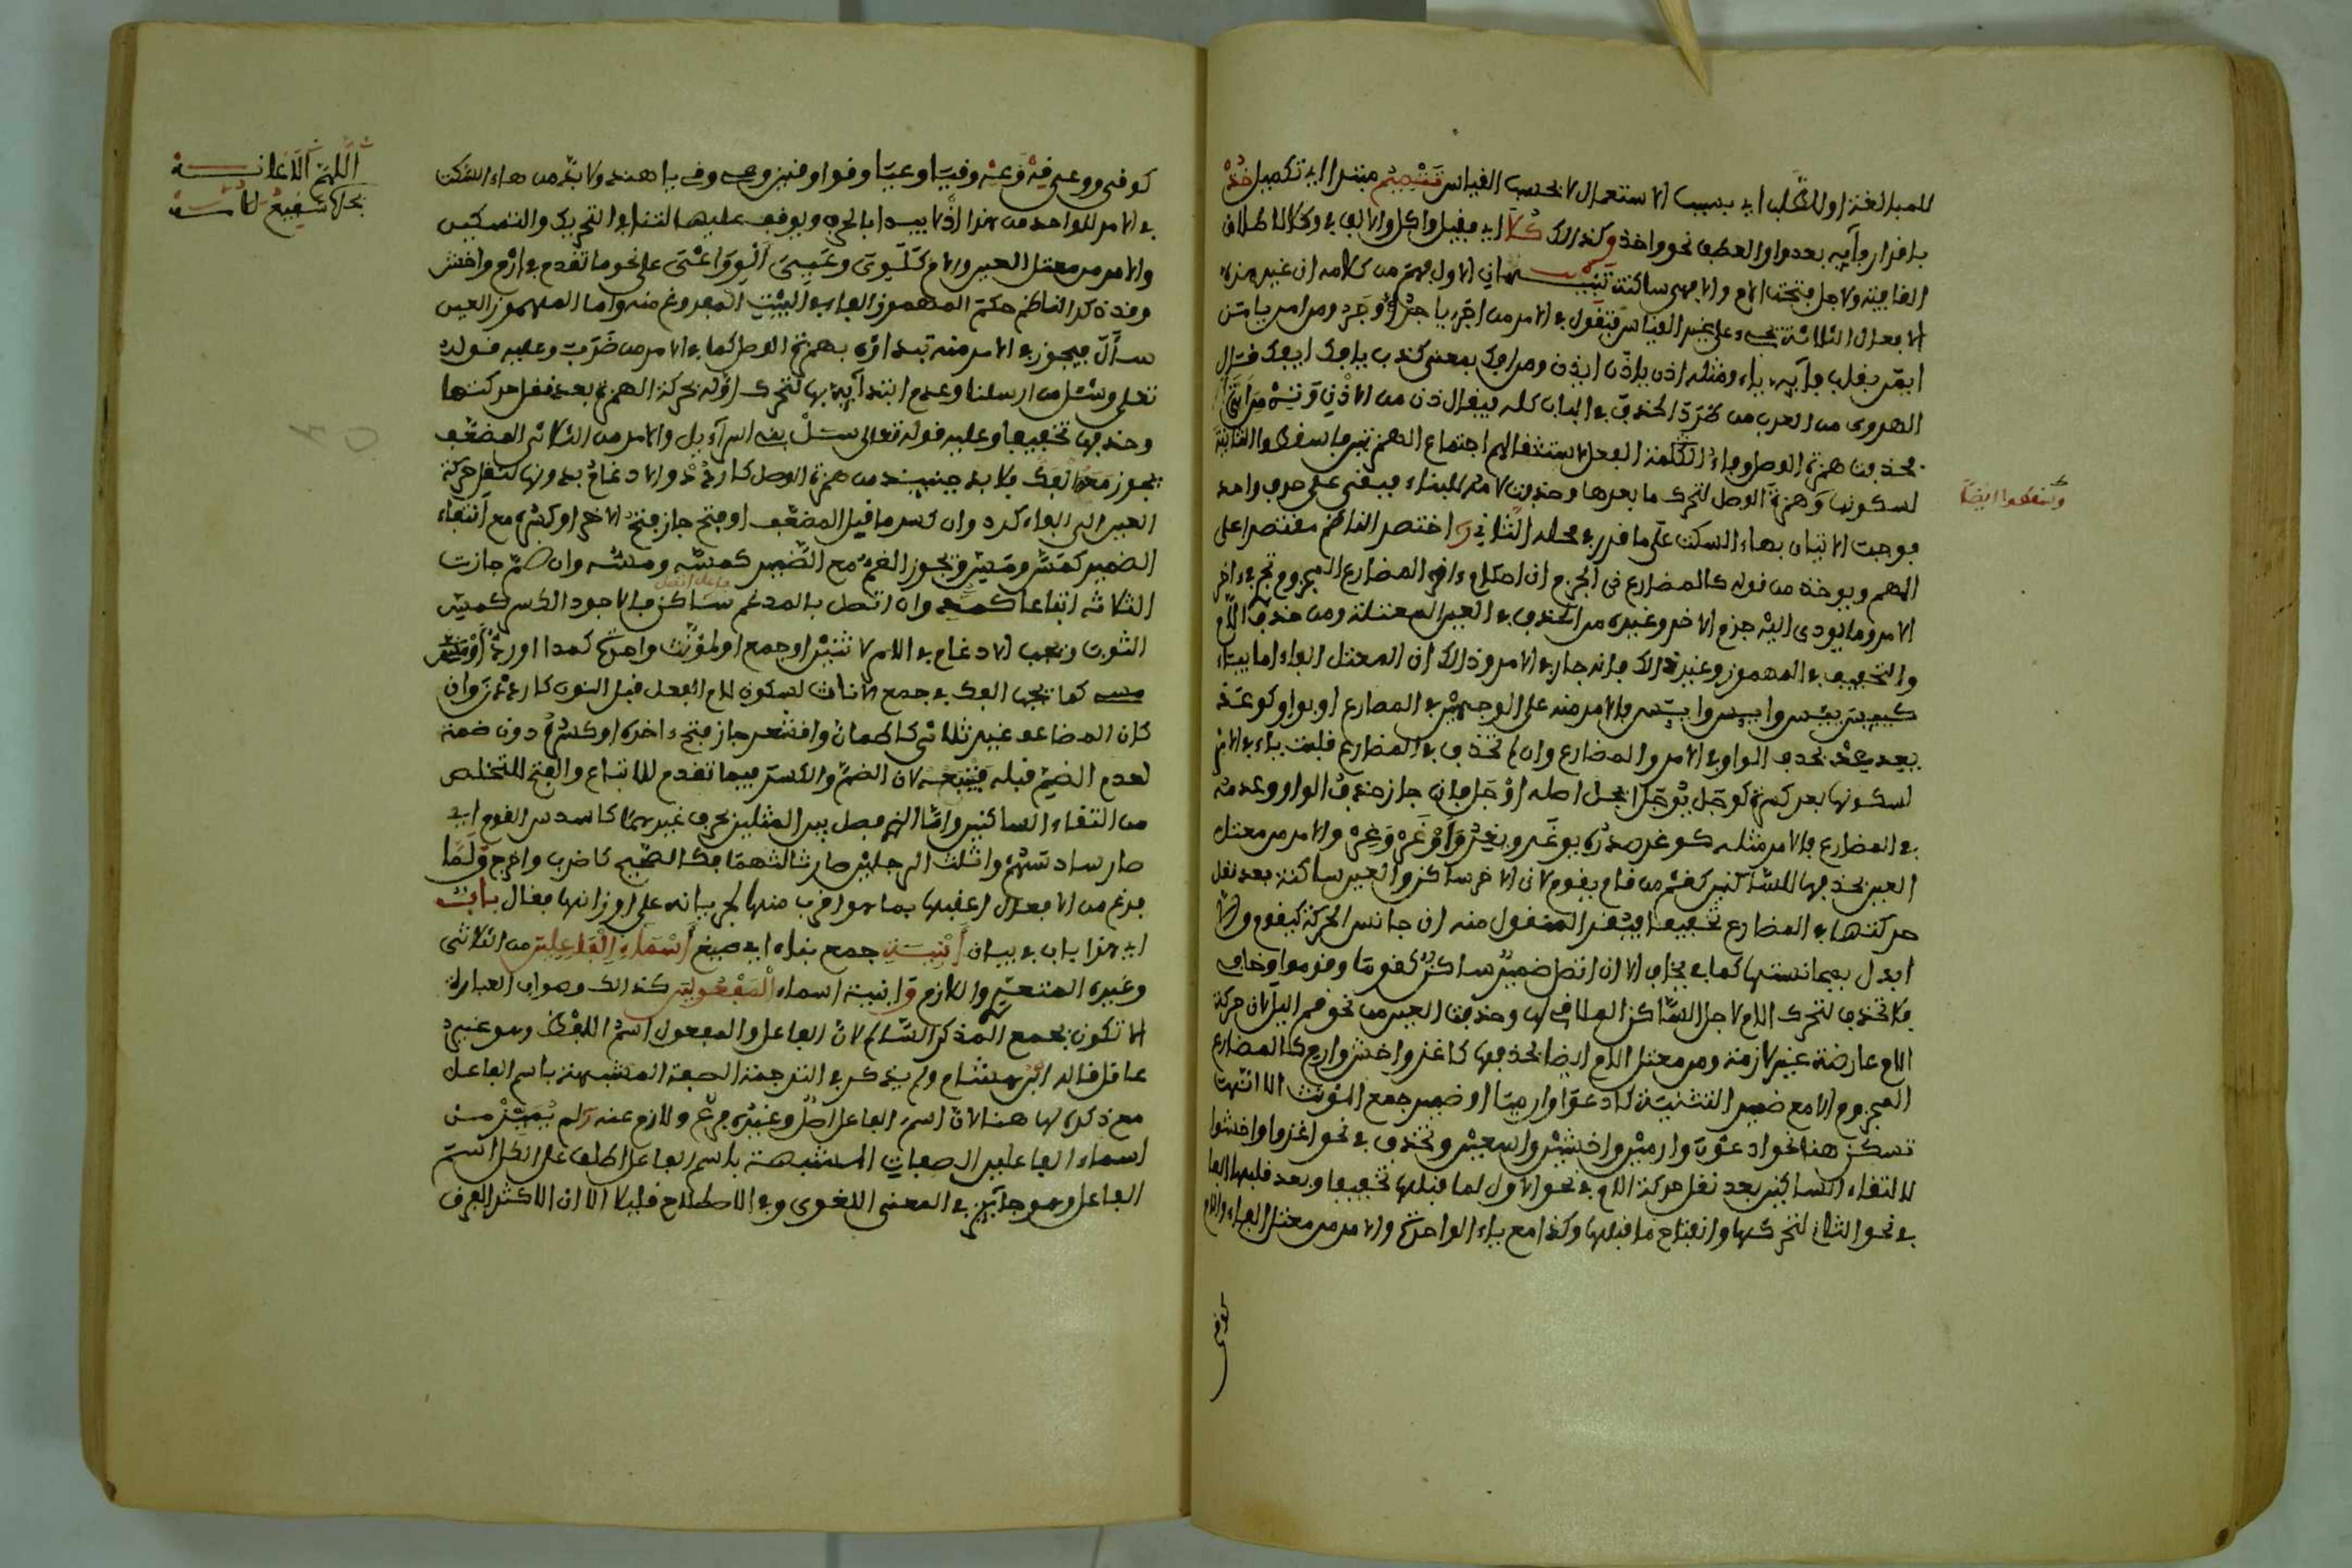 للمبالغة او للطلب اي بسبب الاستعمال لا بحسب القياس تتميم مبتدا اي تكميل خذ
بافراد وآيه بعد واو العطف نحو واخذ وكذالك كلا اي مفيل واكل والالف في وكلا للاطلاق
الفافية ولاجل فتحت اللام والا فهي ساكنة تنبيه اني الاول فهم من كلامه ان غير هذه
الافعال الثلاثة يجيء على غير القياس فتقول في الامر من اجر يا جر وجر ومر امر يامن
ايمن بقلب فآيه ياء ومثله اذن ياذن ايذن ومر افك بمعنى كذب يافك ايفك فال
الهروى من العرب من طرد الحذف في الباب كله فيقال ذن من الاذن
بحذف همزة الوصل وفاء الكلمة الفعل لاستثقالهم اجتماع الهمزتين فاسقطوا الثانية
لسكونها وهمزة الوصل لتحرك ما بعدها وحذفت لامه للبناء فبقي على حرف واحد
فوجب الاتيان بهاء السكت على ما قرر في محله الثاني اختصر الناظم مقتصرا على
المهم ويوخذ من قوله كالمضارع في الجزم ان احكام واخر المضارع المجزوم تجري في اخر
الامر وما يودى اليه جزم الاخر وغيره من الحذف في العين المعتلة ومن حذف اللام
والتخفيف في المهموز وغير ذالك فانه جار في الامر وذالك ان المعتل الفاء اما بياء
كييس ييئس وايبس وايتس فالامر منه على الوجهين في المضارع او بواو كوعد
يعد بحذف الواو في الامر والمضارع وان لم تحذف في المضارع قلبت ياء في الامر
لسكونها بعد كسرة كوجل يوجل ايجل اصله اوجل فان جاز حذف الواو وعدمه
في المضارع فالامر مثله كوغر صدره يوغر ويغر واوغر وغر والامر من معتل
العين بحذفها للساكنين كقم من قام يقوم لان الاخر ساكن والعين ساكنة بعد نقل
حركتها في المضارع تخفيفا فيقر المنقول منه ان جانس الحركة كيقوم والا
ابدل بمجانستها كما في يخاف الا ان اتصل ضمير ساكن كقوما وقوموا وخافى
فلا تحذف لتحرك اللام لاجل الساكن الملاقي لها وحذفت العين من نحو قم اليل لان حركة
اللام عارضة غير لازمة ومر معتل اللام ايضا بحذفها كاغز واخش وارم كالمضارع
المجزوم الا مع ضمير التثنية كادعوا وارميا او ضمير جمع المؤنث الا انها
تسكن هنا نحو ادعون وارمين واخشين واسعين وتحذف في نحو اغزوا واخشوا
لالتقاء الساكنين بعد نقل حركة اللام في نحو الاول لما قبلها تخفيفا وبعد قلبها الفا
في نحو الثان لتحركها وانفتاح ما قبلها وكذا مع ياء الواحدة والامر من معتل الفاء واللام
كوفى
وسقطوا ايضا
اللهم الاعانــة
كوفى ووعى فه وعه وفيا وعيا وفوا وفين وعي وفي يا هند ولا بد من هاء السكت
في الامر للواحد من هذا اذ لا يبدا بالحرف ويوقف عليها لتنافي التحريك والتسكين
والامر من معتل العين واللام على نحو ما تقدم في ارم واخش
وقد ذكر الناظم حكم المهموز الفا في البيت المفروغ منه واما المهموز العين
سأل فيجوز في الامر منه تبدا اؤه بهمزة الوصل كما في الامر من ضرب وعليه قوله
تعلى وسئل من ارسلنا وعدم ابتدآيه بها لتحرك اؤله بحركة الهمزة بعد نقل حركتها
وحذفها تخفيفا وعليه قوله تعالى سل بنى اسرآءيل والامر من الثلاثي المضعف
يجوز فيه الفك فلا بد حينيذ من همزة الوصل كاردد والادغام بدونها لنقل حركة
العين الى الفاء كرد وان كسر ما قبل المضعف او فتح جاز فتح الاخر او كسره مع انتفاء
الضمير كمس ومس ويجوز الضم مع الضمير كمسه ومسه وان ضم جازت
الثلاثه اتباعا كمد وان اتصل بالمدغم ساكن فالاجود الكسر كمس
الثوب ويجب الادغام في اللام لاثنين او جمع او لمؤنث واحدة كمدا او ردوا
كما يجب الفك في جمع الاناث لسكون لام الفعل قبل النون كارددن وان
كان المضاعف غير ثلاثي كاطمان واقشعر جاز فتح ءاخره او كسره دون ضمه
لعدم الضم قبله فيتبعه لان الضم والكسر فيما تقدم للاتباع والفتح للتخلص
من التقاء الساكنين واما الذى فصل بين المثلين بحرف غير مما كاسدس القوم اي
صار سادسهم واثلث الرجلين صار ثالثهما فكالصحيح كاضرب واخرج ولما
فرغ من الافعال اعقبها بما هو اقرب منها لجريانه على اوزانها فقال باب
اي هذا باب في بيان ابنية جمع بناء اي صيغ اسماء الفاعلين من الثلاثي
وغيره المتعدي واللازم وابنية اسماء المفعولين كذالك وصواب العبارة
الا تكون بجمع المذكر السالم لان الفاعل والمفعول اسم اللفظ وهو غير
عاقل قاله ابن هشام ولم يذكر في الترجمة الصفة المشبهة باسم الفاعل
مع ذكره لها هنا لان اسم الفاعل اصل وغيره فرع ولازم عنه ولم يميز من
اسماء الفاعلين الصفات المشبهة باسم الفاعل اطلق على الكل اسم
الفاعل وهو جآيز في المعنى اللغوى وفي الاصطلاح قليلا الا ان الاكثر العرف